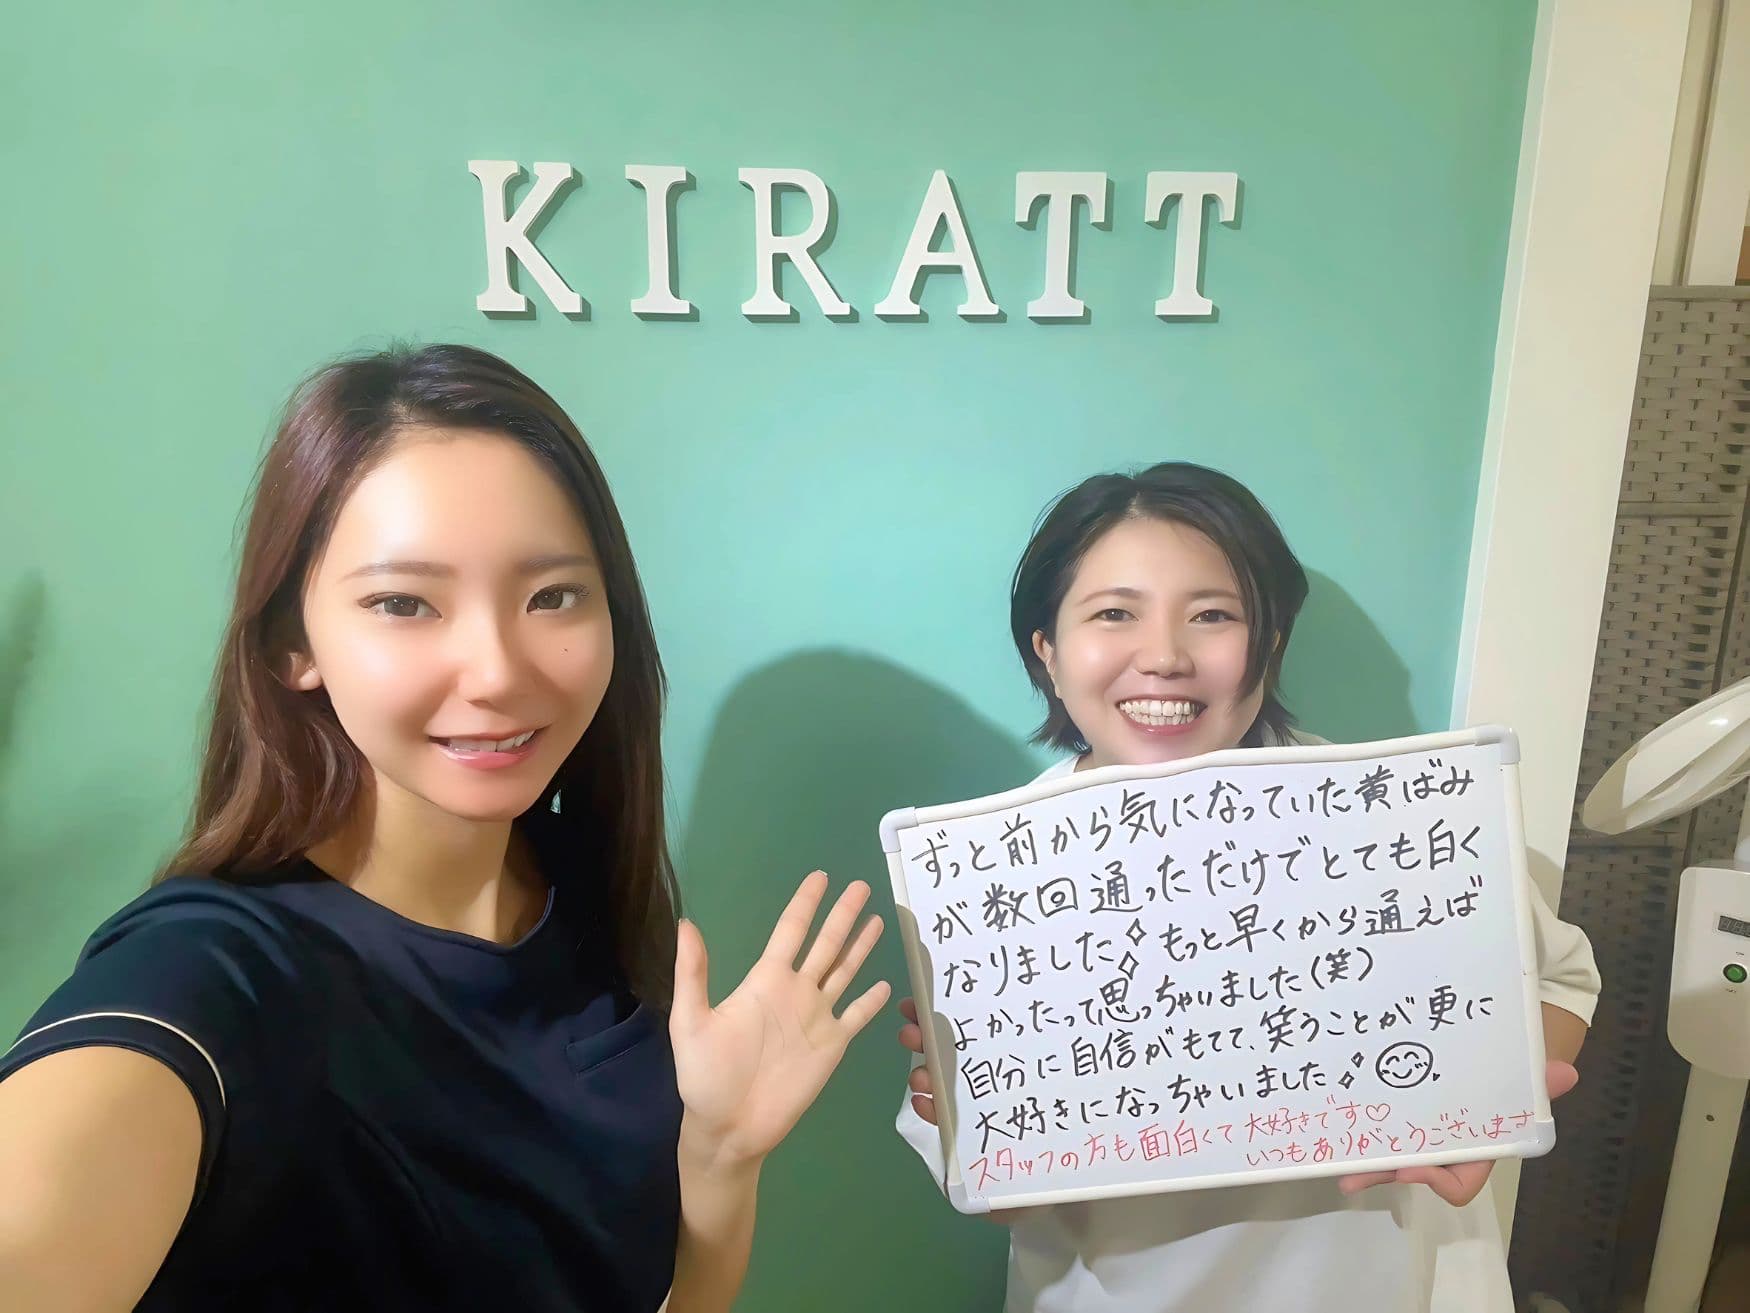 KIRATT
ずっと前から気になっていた黄ばみ
が数回通っただけでとても白く
なりました もっと早くから通えば
よかったって思っちゃいました(笑)
自分に自信がもてて、笑うことが更に
大好きになっちゃいました
スタッフの方も面白くて大好きです♡
いつもありがとうございます